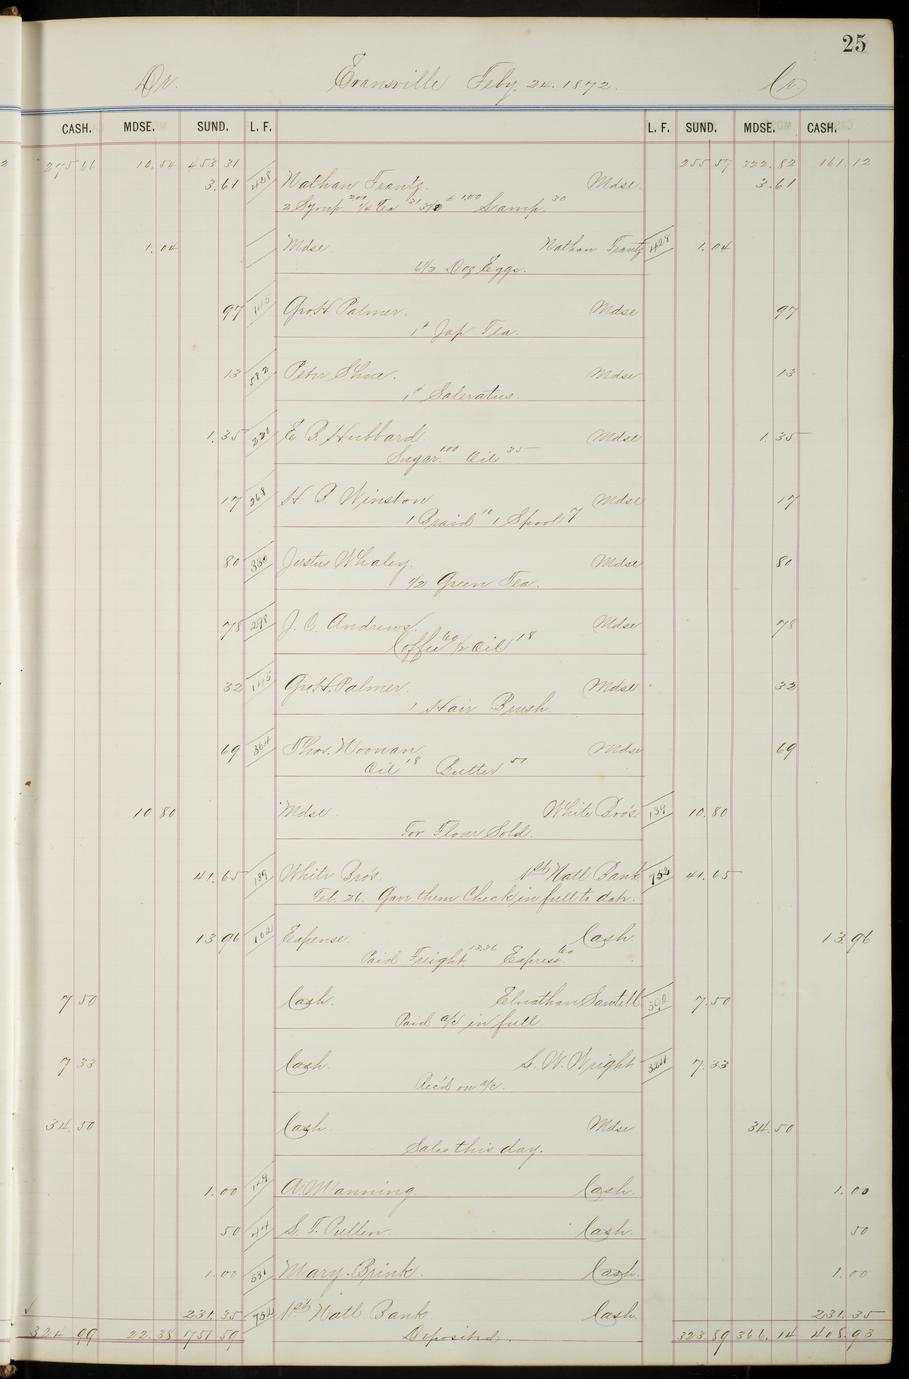 25
Dr. Evansville Feby. 24. 1872. Cr.
CASH. MDSE. SUND. L. F. L. F. SUND. MDSE. CASH.
275 66 10.54 453 31 255 57 322.82 161.12
3.61 428 Nathan Frantz. Mdse. 3.61
2 Syrup 200 1/2 Tea Lamp. 30
1.04 Mdse Nathan Frantz 428 1.04
6 1/2 Doz Eggs.
97 115 Geo H Palmer. Mdse 97
1# Jap Tea.
13 582 Peter Shue. Mdse 13
1# Saleratus.
1.35 220 E B. Hubbard Mdse 1.35
Sugar 100 Oil 35
17 268 H B. Winston Mdse 17
1 Braid 10 1 Spool 7
80 330 Justus Whaley. Mdse 80
1/2 Green Tea.
78 298 J. C. Andrews. Mdse 78
Coffee 60 1/2 Oil 18
32 115 Geo H. Palmer. Mdse 32
1 Hair Brush
69 364 Thos. Noonan Mdse 69
Oil 18 Butter 51
10 80 Mdse. White Bro's 139 10.80
For Flour Sold.
41.65 139 White Bro's. 1st Natl Bank 752 41.65
Feb. 26. Gave them Check in full to date.
13 96 102 Expense. Cash. 13.96
Paid Freight 13.36 Express 60
7 50 Cash. Elnathan Sawtell 302 7.50
Paid a/c in full
7 33 Cash. S. W. Wright 324 7.33
Rec'd on a/c.
34.50 Cash Mdse 34.50
Sales this day.
1.00 129 A. Manning Cash. 1.00
50 44 S. T. Pullen. Cash. 50
1.00 531 Mary Brink. Cash. 1.00
231.35 752 1st Natl Bank Cash. 231.35
324 99 22.38 751 59 Deposited. 323 89 366.14 408.93